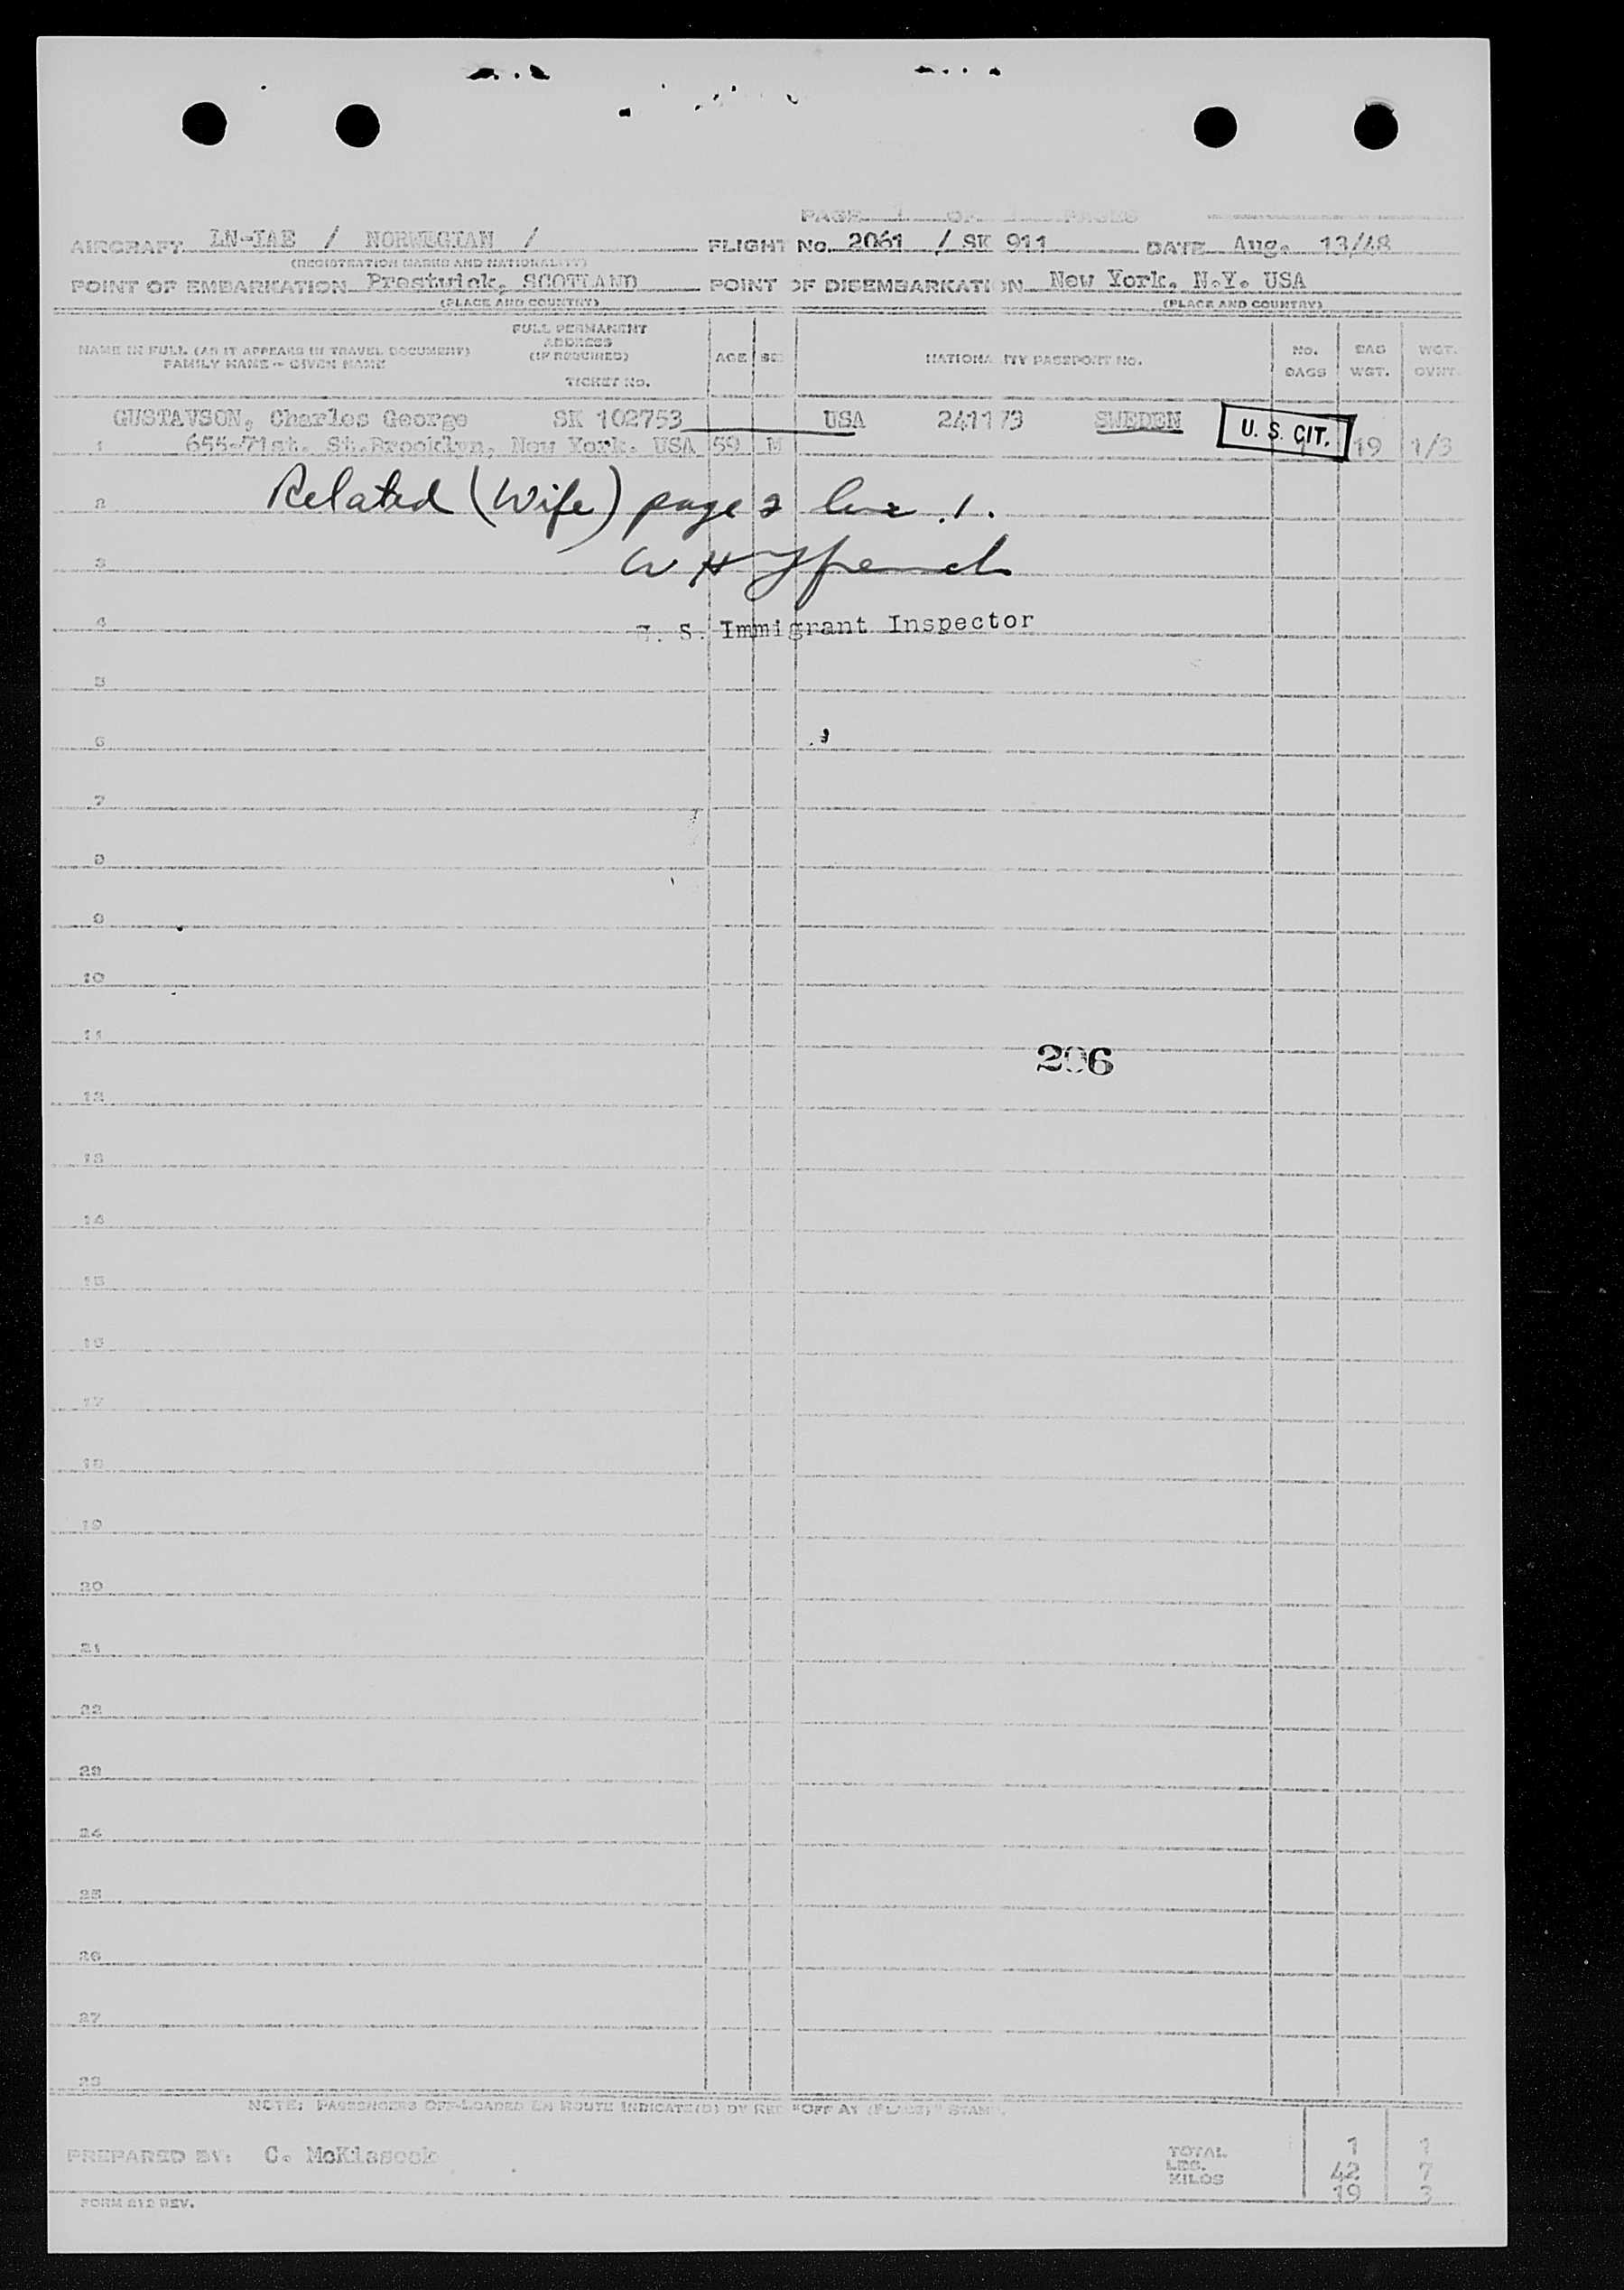 PAGE 1 OF PAGES
AIRCRAFT LN-IAE / NORWEGIAN / FLIGHT No. 2061 / SK 911 DATE Aug. 13/48
(REGISTRATION MARKS AND NATIONALITY)
POINT OF EMBARKATION Prestwick, SCOTLAND POINT OF DISEMBARKATION New York, N.Y. USA
(PLACE AND COUNTRY) (PLACE AND COUNTRY)
NAME IN FULL (AS IT APPEARS IN TRAVEL DOCUMENT) FAMILY NAME - GIVEN NAME
FULL PERMANENT ADDRESS (IF REQUIRED)
TICKET No.
AGE SEX NATIONALITY PASSPORT No. No. BAGS BAG WGT. WGT. OVHT.
GUSTAVSON, Charles George SK 102753 USA 241173 SWEDEN U. S. CIT.
1 655-71st. St. Brooklyn, New York. USA 59 M 1 19 1/3
2 Related (Wife) page 2 line 1.
3 W H French
4 U. S. Immigrant Inspector
5
6
7
8
9
10
11
206
12
13
14
15
16
17
18
19
20
21
22
23
24
25
26
27
28
NOTE: PASSENGERS OFF-LOADED EN ROUTE INDICATE(D) BY RED "OFF AT (PLACE)" STAMP.
PREPARED BY: C. McKissock
TOTAL 1 1
LBS. 42 7
KILOS 19 3
FORM 812 REV.